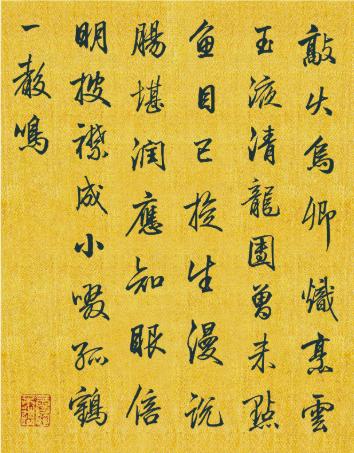 敲火烏卿熾烹雲
玉液清龍團曾未點
魚目已生漫說
腸堪潤應知眼倍
明披襟成小啜孤鶴
一聲鳴